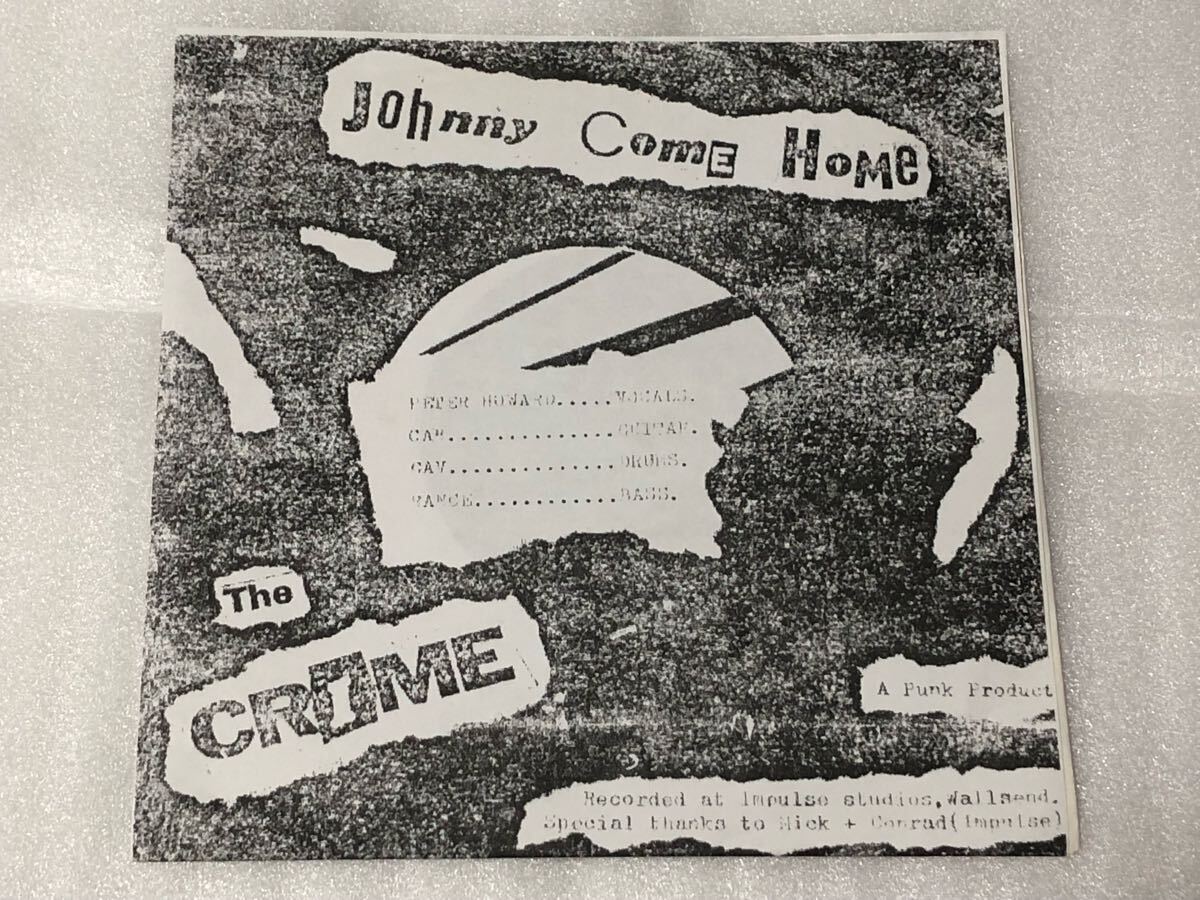 Johnny Come Home
PETER HOWARD.....VOCALS.
CAR..............GUITAR.
GAV..............DRUMS.
VANCE............BASS.
The
CRIME
A Punk Product
Recorded at Impulse studios,Wallsend.
Special thanks to Mick + Conrad(impulse)